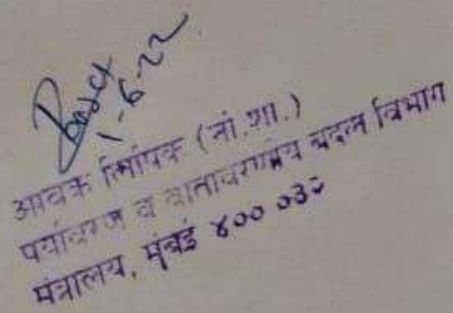 1-6-22
आवक लिपिक (नों.शा.)
पर्यावरण व वातावरणीय बदल विभाग
मंत्रालय, मुंबई ४०० ०३२